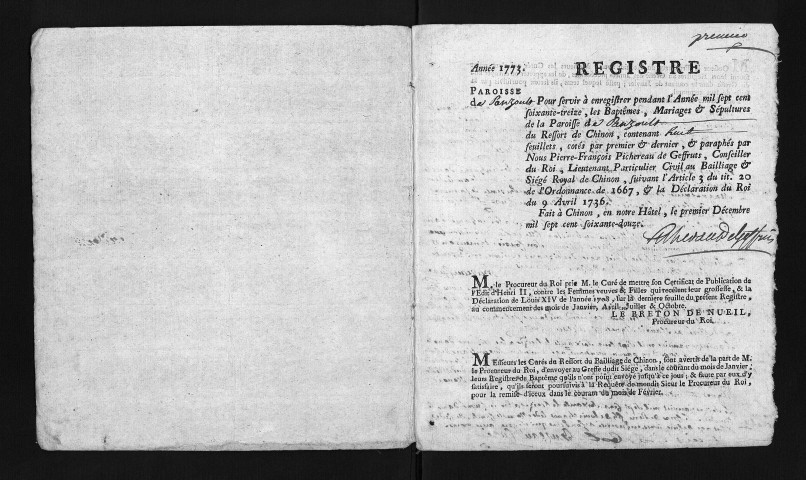 premier
Année 1773. REGISTRE
PAROISSE
de Panzoult Pour servir à enregistrer pendant l'Année mil sept cent
soixante-treize, les Baptêmes, Mariages & Sépultures
de la Paroisse de Panzoult
du Ressort de Chinon, contenant huit
feuillets, cotés par premier & dernier, & paraphés par
Nous Pierre-François Pichereau de Geffruts, Conseiller
du Roi, Lieutenant Particulier Civil au Bailliage &
Siégé Royal de Chinon, suivant l'Article 3 du tit. 20
de l'Ordonnance de 1667, & la Déclaration du Roi
du 9 Avril 1736.
Fait à Chinon, en notre Hôtel, le premier Décembre
mil sept cent soixante-douze.
M. le Procureur du Roi prie M. le Curé de mettre son Certificat de Publication de
l'Edit d'Henri II, contre les Femmes veuves & Filles qui recélent leur grossesse, & la
Déclaration de Louis XIV de l'année 1708, sur la derniere feuille du présent Registre,
au commencement des mois de Janvier, Avril, Juillet & Octobre.
LE BRETON DE NUEIL,
Procureur du Roi.
Messieurs les Curés du Ressort du Bailliage de Chinon, sont avertis de la part de M.
le Procureur du Roi, d'envoyer au Greffe dudit Siége, dans le courant du mois de Janvier,
leurs Registres de Baptême qu'ils n'ont point envoyé jusqu'à ce jour; & faute par eux d'y
satisfaire, qu'ils seront poursuivis à la Requête de mondit Sieur le Procureur du Roi,
pour la remise d'iceux dans le courant du mois de Février.